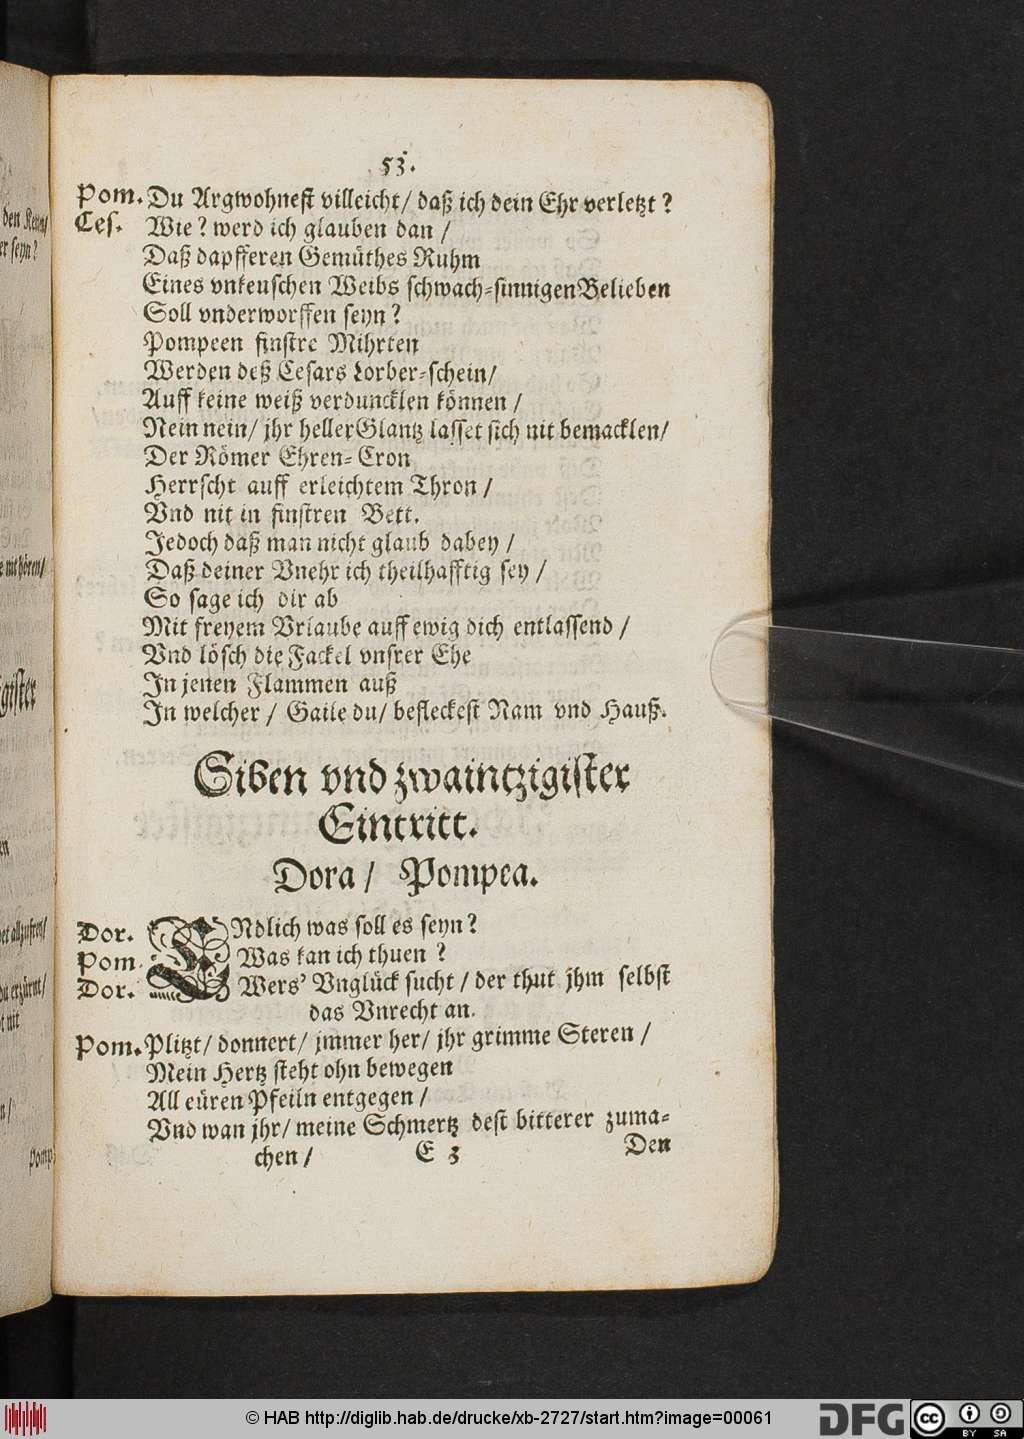 53.
Pom. Du Argwohnest villeicht/ daß ich dein Ehr verletzt?
Ces. Wie? werd ich glauben dan /
Daß dapfferen Gemüthes Ruhm
Eines vnkeuschen Weibs schwach-sinnigen Belieben
Soll vnderworffen seyn?
Pompeen finstre Mihrten
Werden deß Cesars Lorber-schein/
Auff keine weiß verduncklen können /
Nein nein/ jhr heller Glantz lasset sich nit bemacklen/
Der Römer Ehren-Cron
Herrscht auff erleichtem Thron /
Vnd nit in finstren Bett.
Jedoch daß man nicht glaub dabey /
Daß deiner Vnehr ich theilhafftig sey /
So sage ich dir ab
Mit freyem Vrlaube auff ewig dich entlassend /
Vnd lösch die Fackel vnsrer Ehe
In jenen Flammen auß
In welcher / Gaile du/ befleckest Nam vnd Hauß.
Siben vnd zwaintzigister
Eintritt.
Dora / Pompea.
Dor. ENdlich was soll es seyn?
Pom. Was kan ich thuen ?
Dor. Wers' Vnglück sucht / der thut jhm selbst
das Vnrecht an.
Pom. Plitzt/ donnert/ jmmer her/ jhr grimme Steren /
Mein Hertz steht ohn bewegen
All eüren Pfeiln entgegen /
Vnd wan jhr/ meine Schmertz dest bitterer zuma-
chen / E 3 Den
© HAB http://diglib.hab.de/drucke/xb-2727/start.htm?image=00061
DFG
cc BY SA